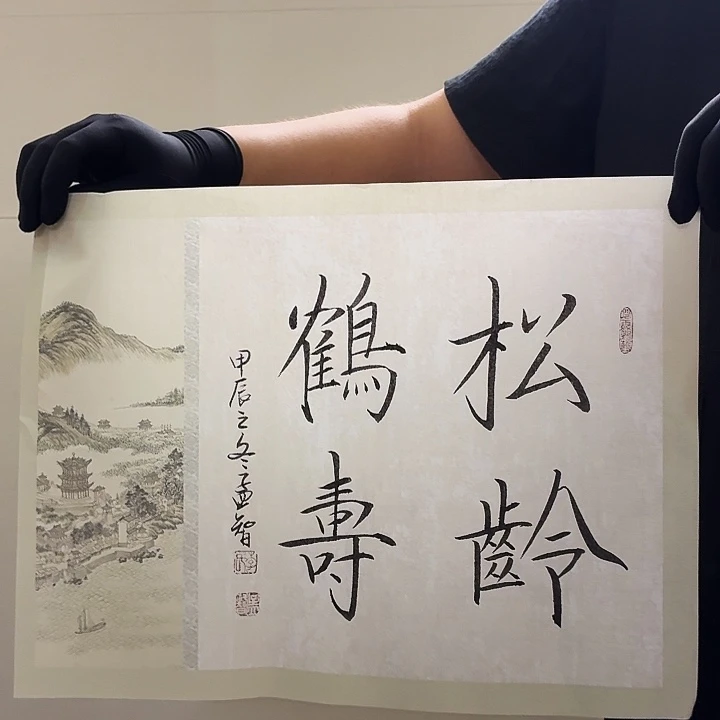 松齡
鶴壽
甲辰之冬孟智